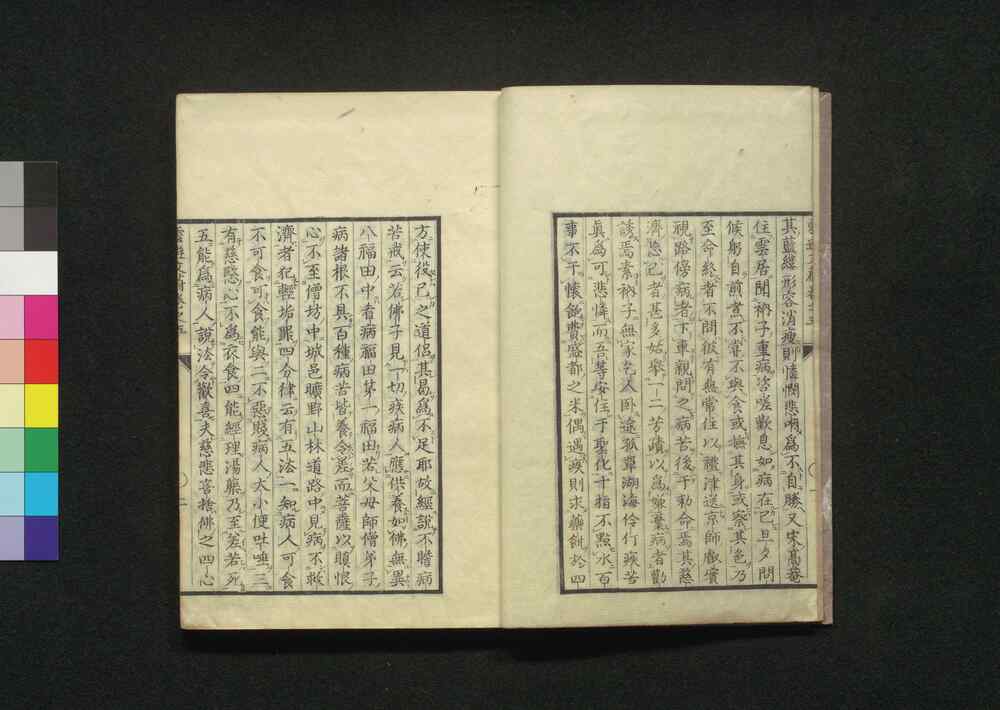 其藍縷形容消瘦則憐憫悲咽爲不自勝又宋高菴
住雲居聞衲子重病咨嗟歎息如病在己旦夕問
候躬自煎煮不嘗不與食或撫其身或察其色乃
至命終者不問彼有無常住以禮津送京師獻實
視路傍病者下車親問之病苦後于勅命焉其慈
濟忽己者甚多姑擧一二苦蹟以爲嫌棄病者勸
誘焉素衲子無家乞人臥途孤單湖海伶仃疾苦
眞爲可悲憐而吾等安住于聖化十指不點水百
事不干懷飽費盛都之米偶遇疾則求藥餌於四
方使役己之道侶其曷爲不足耶故經說不瞻病
苦戒云若佛子見一切疾病人應供養如佛無異
八福田中看病福田第一福田若父母師僧弟子
病諸根不具百種病苦皆養令差而菩薩以瞋恨
心不至僧坊中城邑曠野山林道路中見病不救
濟者犯輕垢罪四分律云有五法一知病人可食
不可食可食能與二不惡賤病人大小便吐唾三
有慈愍心不爲衣食四能經理湯藥乃至差若死
五能爲病人說法令歡喜夫慈悲喜捨佛之四心